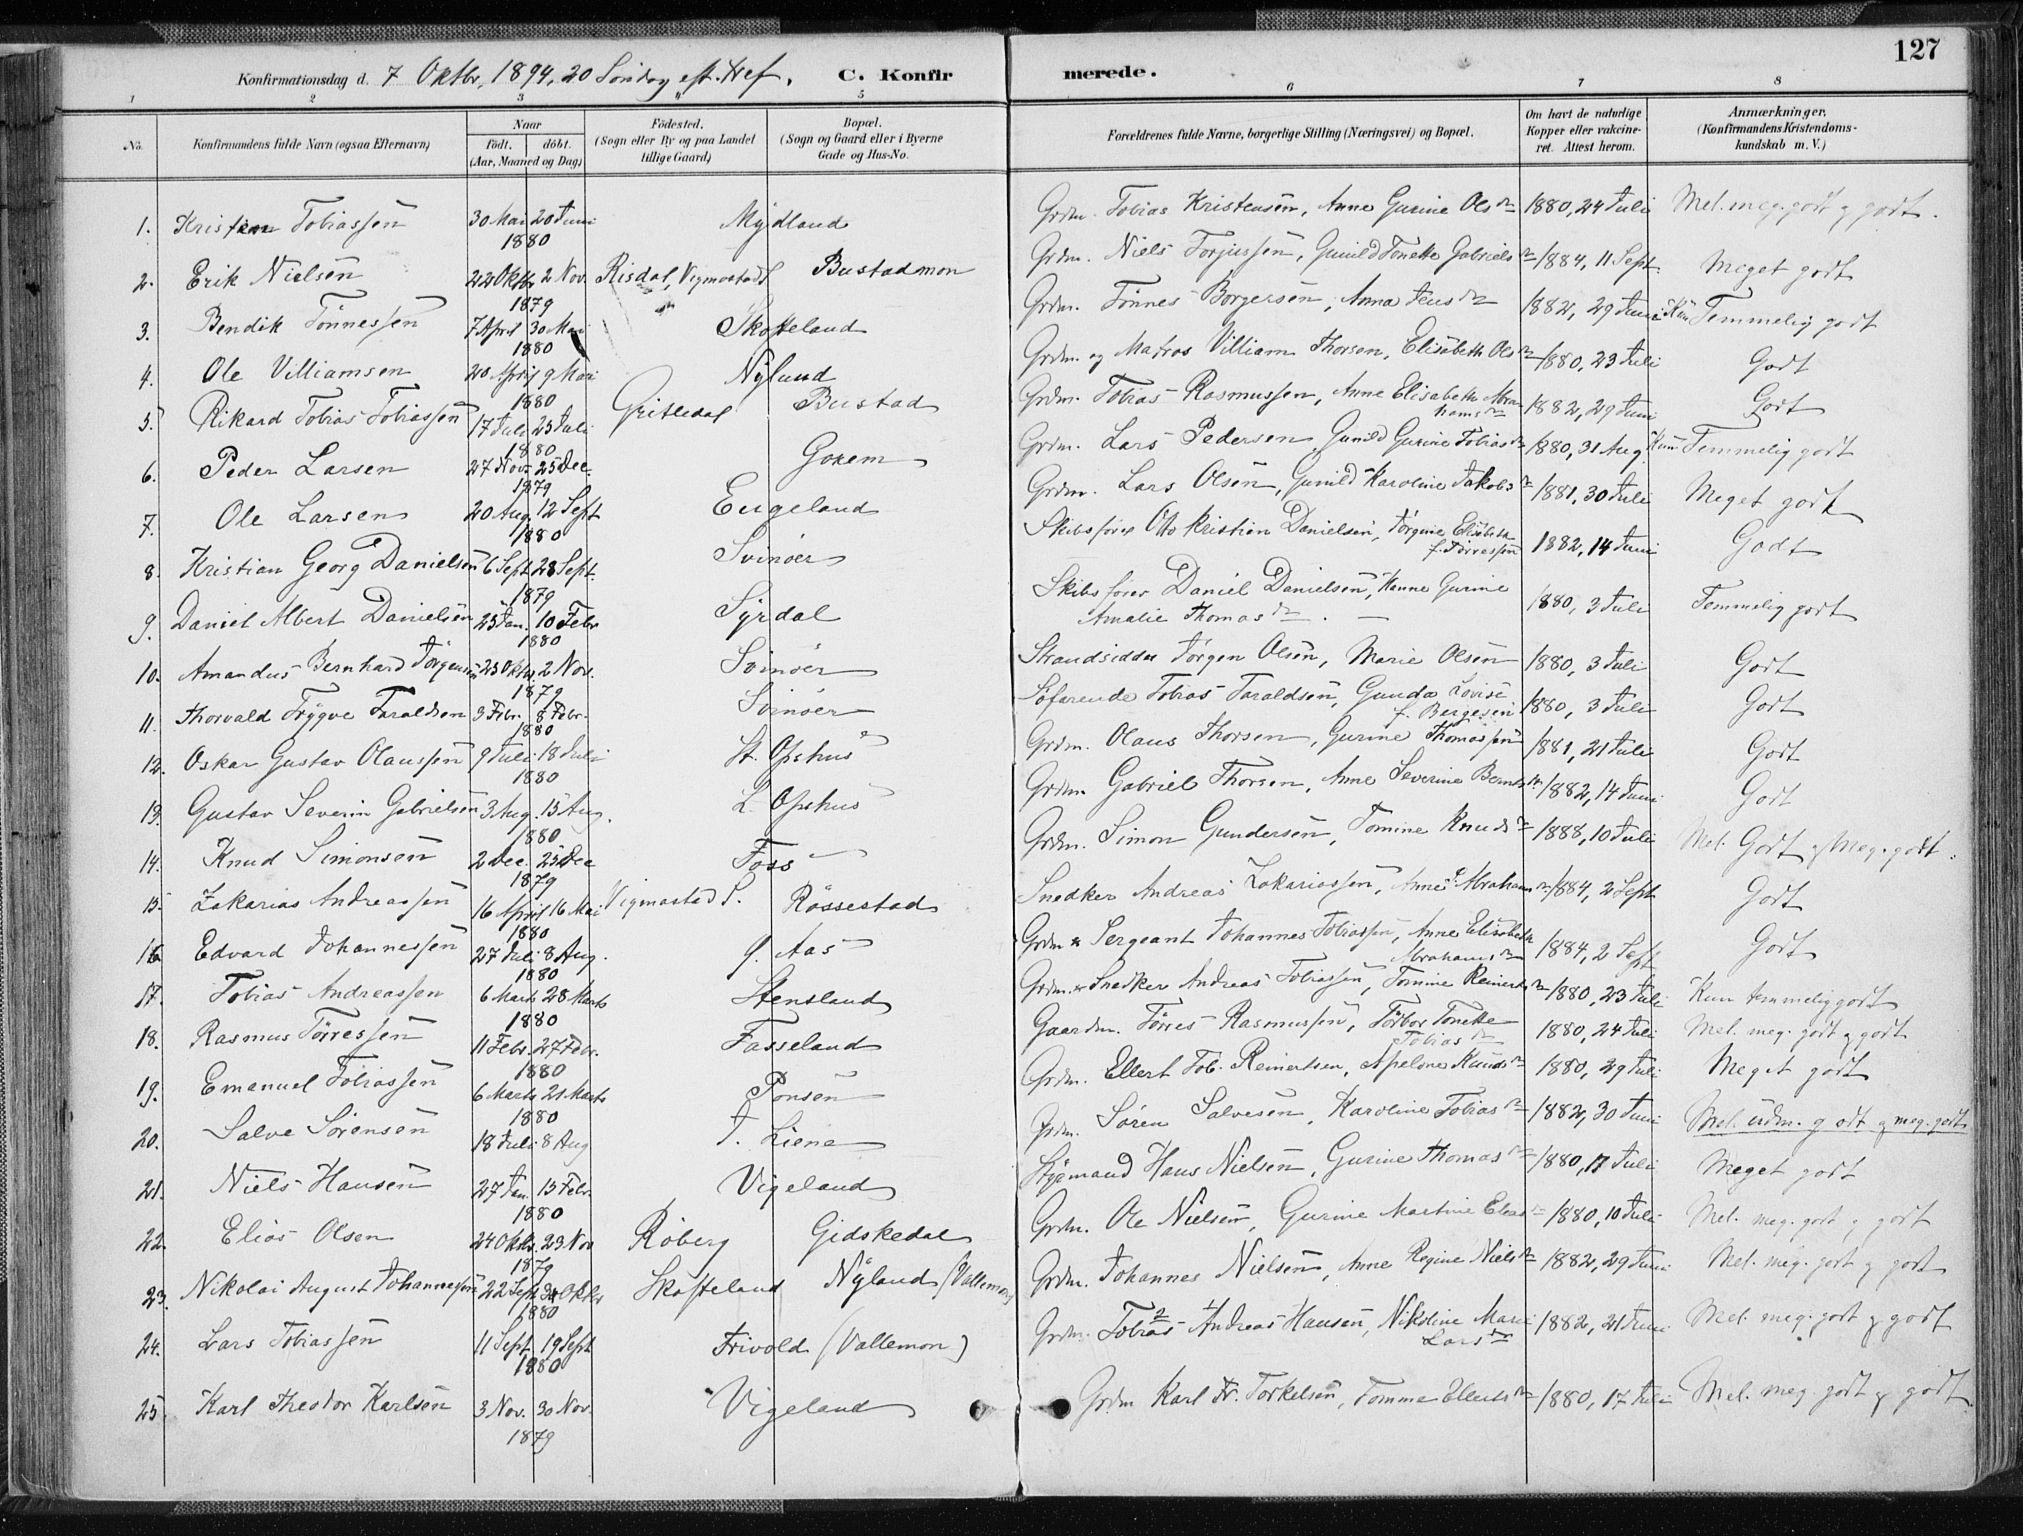 127
Konfirmationsdag d. 7 Oktbr. 1894, 20 Søndag eft. Tref. C. Konfirmerede.
1 2 3 4 5 6 7 8
No. Konfirmandens fulde Navn (ogsaa Efternavn) Naar født. døbt. (Aar, Maaned og Dag) Fødested. (Sogn eller By og paa Landet tillige Gaard) Bopæl. (Sogn og Gaard eller i Byerne Gade og Hus-No. Forældrenes fulde Navne, borgerlige Stilling (Næringsvei) og Bopæl. Om havt de naturlige Kopper eller vakcineret. Attest herom. Anmærkninger. (Konfirmandens Kristendomskundskab m. V.)
1. Kristian Tobiassen 30 Mai 20 Juni 1880 Mydland Grdm. Tobias Kristensen, Anne Gurine Olsdr 1880, 24 Juli Mel. meg. godt og godt.
2. Erik Nielsen 22 Oktbr 2 Nov. 1879 Risdal, Vigmostad S Bustadmon Grdm. Niels Torjussen, Gunild Tonette Gabrielsdr 1884, 11 Sept. Meget godt
3. Bendik Tønnessen 7 April 30 Mai 1880 Skofteland Grdm. Tønnes Borgersen, Anna Jensdr 1882, 29 Juni Kun Temmelig godt
4. Ole Villiamsen 20 April 9 Mai 1880 Nyland Grdm. og Matros Villiam Thorsen, Elisabeth Olsdr 1880, 23 Juli Godt
5. Rikard Tobias Tobiassen 17 Juli 25 Juli 1880 Gritledal Bustad Grdm. Tobias Rasmussen, Anne Elisabeth Abrahamsdr 1882, 29 Juni Godt
6. Peder Larsen 27 Nov. 25 Dec. 1879 Gorem Grdm. Lars Pedersen, Gunild Gurine Tobiasdr 1880, 31 Aug. Kun Temmelig godt
7. Ole Larsen 20 Aug. 12 Sept 1880 Eugeland Grdm. Lars Olsen, Gunild Karoline Jakobsdr 1881, 30 Juli Meget godt
8. Kristian Georg Danielsen 6 Sept 28 Sept. 1879 Svinøer Skibsfører Otto Kristian Danielsen, Jørgine Elisabeth f. Tørressen 1882, 14 Juni Godt
9. Daniel Albert Danielsen 25 Jan. 10 Febr 1880 Syrdal Skibsfører Daniel Danielsen, Hanne Gurine Amalie Thomasdr. 1880, 3 Juli Temmelig godt
10. Amandus Bernhard Jørgensen 25 Oktbr. 2 Nov. 1879 Svinøer Strandsidder Jørgen Olsen, Marie Olsen 1880, 3 Juli Godt
11. Thorvald Trygve Taraldsen 3 Febr. 8 Febr. 1880 Svinøer Søfarende Tobias Taraldsen, Gunda Lovise f. Bergesen 1880, 3 Juli Godt
12. Oskar Gustav Olaussen 9 Juli 18 Juli 1880 St. Ofshus Grdm. Olaus Thorsen, Gurine Thomassen 1881, 21 Juli Godt
13. Gustav Severin Gabrielsen 3 Aug. 15 Aug. 1880 L. Ofshus Grdm. Gabriel Thorsen, Anne Severine Berntsdr 1882, 14 Juni Godt
14. Knud Simonsen 2 Dec. 25 Dec 1879 Foss Grdm. Simon Gundersen, Tomine Knudsdr 1888, 10 Juli Mel. Godt og Meg. godt.
15. Zakarias Andreassen 16 April 16 Mai 1880 Vigmostad S. Røssestad Snedker Andreas Zakariassen, Anne Abrahamsdr 1884, 2 Sept Godt
16. Edvard Johannessen 27 Juli 8 Aug. 1880 g. Aas Grdm. & Sergeant Johannes Tobiassen, Anne Elisabeth Abrahamsdr 1884, 2 Sept Godt
17. Tobias Andreassen 6 Marts 28 Marts 1880 Stensland Grdm. & Snedker Andreas Tobiassen, Tomine Reinertsdr 1880, 23 Juli Kun temmelig godt
18. Rasmus Tørressen 11 Febr. 27 Febr. 1880 Fasseland Gaardm. Tørres Rasmussen, Torbor Tonette Tobiasdr 1880, 24 Juli Mel. meg. godt og godt
19. Emanuel Tobiassen 6 Marts 21 Marts 1880 Ponsen Grdm. Ellert Tob. Reinertsen, Apelone Knudsdr 1880, 29 Juli Meget godt
20. Salve Sørensen 18 Juli 8 Aug 1880 I. Liene Grdm. Søren Salvesen, Karoline Tobiasdr 1882, 30 Juni Mel. udm. godt og meg. godt
21. Niels Hansen 27 Jan. 15 Febr. 1880 Vigeland Styrmand Hans Nielsen, Gurine Thomasdr 1880, 17 Juli Meget godt
22. Elias Olsen 24 Oktbr. 23 Nov 1879 Røberg Gidskedal Grdm. Ole Nielsen, Gurine Martine Eliasdr 1880, 10 Juli Mel. meg. godt og godt
23. Nikolai August Johannessen 22 Sept 24 Oktbr 1880 Skofteland Nyland (Vallemon) Grdm. Johannes Nielsen, Anne Regine Nielsdr 1882, 29 Juni Mel. meg. godt og godt
24. Lars Tobiassen 11 Sept 19 Sept 1880 Frivold (Vallemon) Grdm. Tobias Andreas Hansen, Nikoline Marie Larsdr 1882, 21 Juni Mel. meg. godt og godt
25. Karl Theodor Karlsen 3 Nov. 30 Nov. 1879 Vigeland Grdm Karl Fr. Torkelsen, Tomine Ellertsdr 1880, 17 Juli Mel. meg. godt og godt